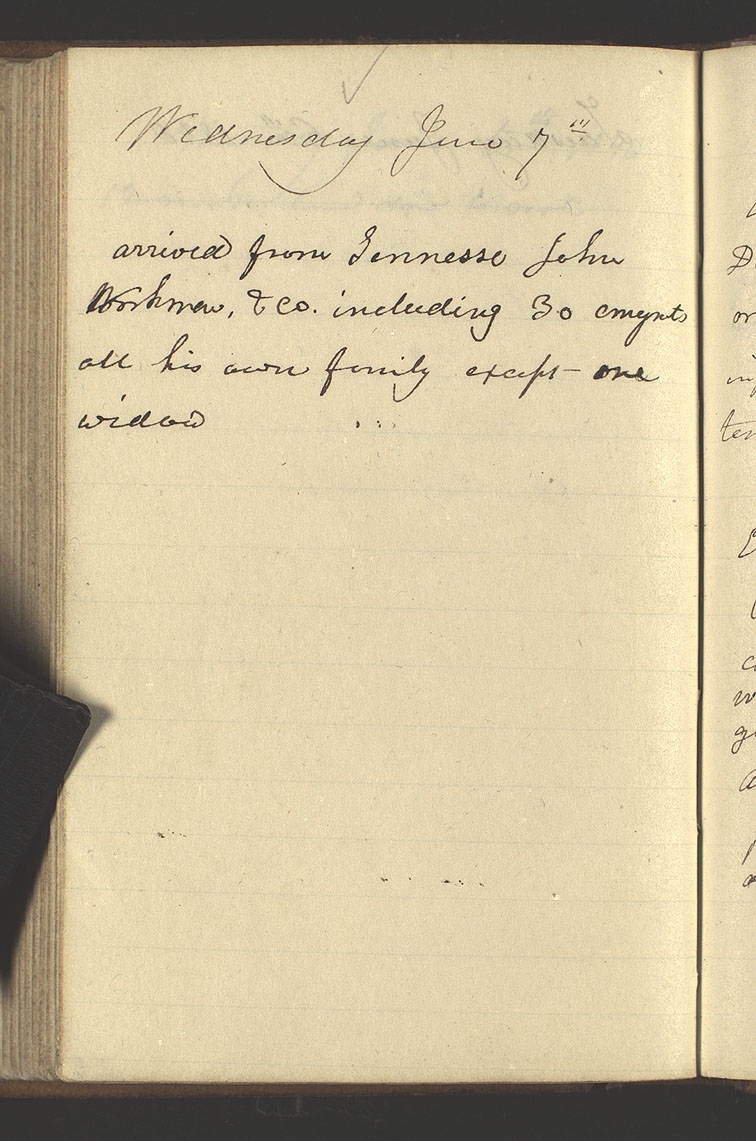 Wednesday June 7th
arrived from Tennesse John
Workman, & co. including 30 emegnts
all his own family except one
widow